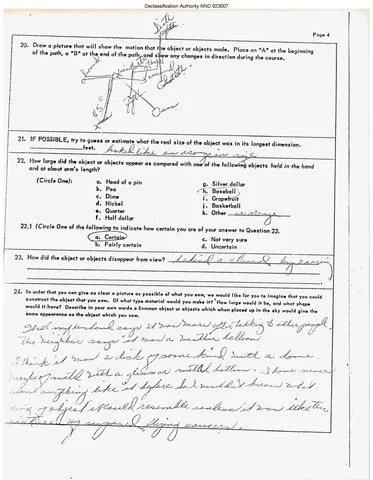 Declassification Authority NND 923007
Page 4
20. Draw a picture that will show the motion that the object or objects made. Place an "A" at the beginning
of the path, a "B" at the end of the path, and show any changes in direction during the course.
21. IF POSSIBLE, try to guess or estimate what the real size of the object was in its longest dimension.
feet. looked like an orange in size
22. How large did the object or objects appear as compared with one of the following objects held in the hand
and at about arm's length?
(Circle One):
a. Head of a pin
b. Pea
c. Dime
d. Nickel
e. Quarter
f. Half dollar
g. Silver dollar
h. Baseball
i. Grapefruit
j. Basketball
k. Other an orange
22.1 (Circle One of the following to indicate how certain you are of your answer to Question 22.
a. Certain
b. Fairly certain
c. Not very sure
d. Uncertain
23. How did the object or objects disappear from view? behind a cloud
24. In order that you can give as clear a picture as possible of what you saw, we would like for you to imagine that you could
construct the object that you saw. Of what type material would you make it? How large would it be, and what shape
would it have? Describe in your own words a common object or objects which when placed up in the sky would give the
same appearance as the object which you saw.
my husband says it was after talking to other people.
The neighbor says it was a weather balloon
I think it was a disk of some kind with a dome
maybe of metal with a glass or metal bottom. I have never
seen anything like it before so I wouldn't know what
kind of object it could resemble unless it was like the
flying saucers.